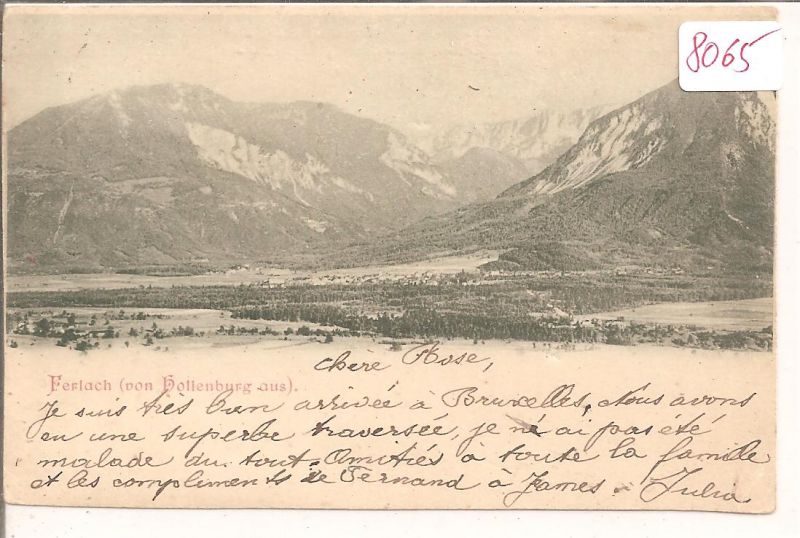 8065
chère Rose,
Ferlach (von Hollenburg aus).
Je suis très bien arrivée à Bruxelles, Nous avons
eu une superbe traversée, je n'ai pas été
malade du tout. Amitiés à toute la famille
et les compliments de Fernand à James. Julia